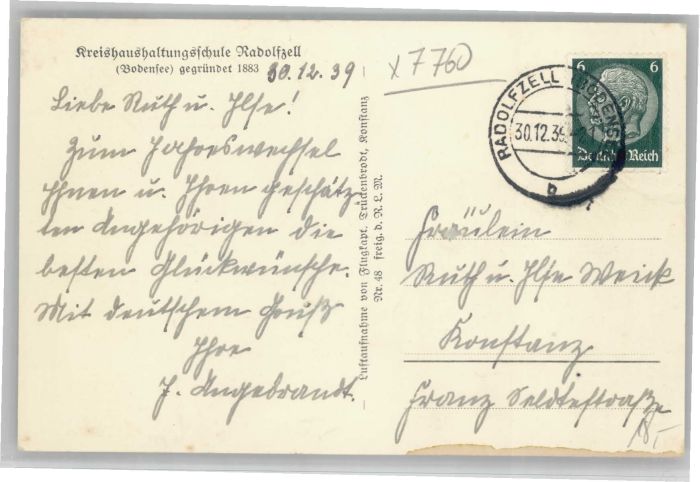 Kreishaushaltungsschule Radolfzell
(Bodensee) gegründet 1883
30.12.39
Liebe Ruth u. Ilse!
Zum Jahreswechsel
Ihnen u. Ihren geschätz-
ten Angehörigen die
besten Glückwünsche.
Mit deutschem Gruß
Ihre
J. Angebrandt.
Luftaufnahme von Flugkapt. Trückenbrodt, Konstanz
Nr. 48 freig. d. R. L. M.
x 7760
RADOLFZELL (BODENSEE)
30.12.39
b
6 6
Deutsches Reich
Fräulein
Ruth u. Ilse Weick
Konstanz
Franz Seldtestraße
18,-